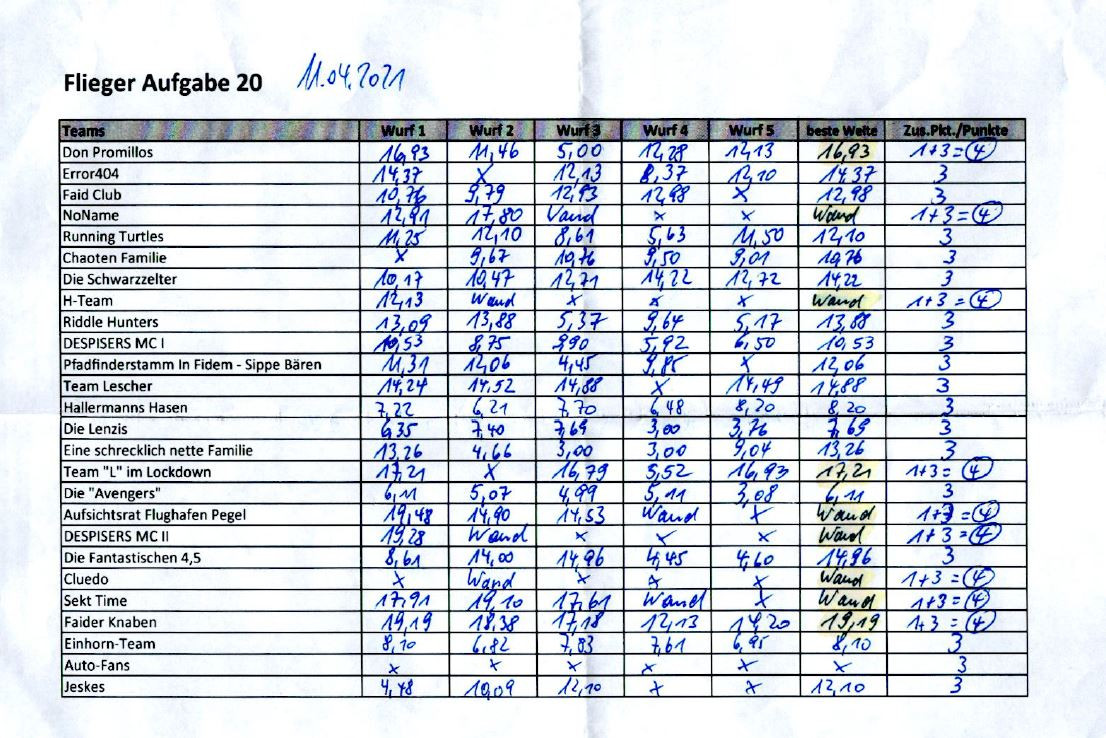 Flieger Aufgabe 20 11.04.2021
Teams Wurf 1 Wurf 2 Wurf 3 Wurf 4 Wurf 5 beste Weite Zus.Pkt./Punkte
Don Promillos 16,93 11,46 5,00 12,28 12,13 16,93 1+3=4
Error404 14,37 X 12,13 8,37 12,10 14,37 3
Faid Club 10,76 9,79 12,93 12,98 X 12,98 3
NoName 12,91 17,80 Wand x x Wand 1+3=4
Running Turtles 11,25 12,10 8,61 5,63 11,50 12,10 3
Chaoten Familie x 9,67 10,76 9,50 9,01 10,76 3
Die Schwarzzelter 10,17 10,47 12,71 14,22 12,72 14,22 3
H-Team 12,13 Wand x x x Wand 1+3=4
Riddle Hunters 13,09 13,88 5,37 9,64 5,17 13,88 3
DESPISERS MC I 10,53 8,75 9,90 5,92 6,50 10,53 3
Pfadfinderstamm In Fidem - Sippe Bären 11,31 12,06 4,45 9,85 x 12,06 3
Team Lescher 14,24 14,52 14,88 X 14,49 14,88 3
Hallermanns Hasen 7,22 6,21 7,70 6,48 8,20 8,20 3
Die Lenzis 6,35 7,40 7,69 3,00 3,76 7,69 3
Eine schrecklich nette Familie 13,26 4,66 3,00 3,00 9,04 13,26 3
Team "L" im Lockdown 17,21 X 16,79 5,52 16,93 17,21 1+3=4
Die "Avengers" 6,11 5,07 4,99 5,11 3,08 6,11 3
Aufsichtsrat Flughafen Pegel 19,48 14,90 14,53 Wand x Wand 1+3=4
DESPISERS MC II 19,28 Wand x x x Wand 1+3=4
Die Fantastischen 4,5 8,61 14,00 14,96 4,45 4,60 14,96 3
Cluedo x Wand x x x Wand 1+3=4
Sekt Time 17,91 19,10 17,61 Wand x Wand 1+3=4
Faider Knaben 19,19 18,38 17,18 12,13 14,20 19,19 1+3=4
Einhorn-Team 8,10 6,82 7,83 7,61 6,95 8,10 3
Auto-Fans x x x x x x 3
Jeskes 4,48 10,09 12,10 x x 12,10 3